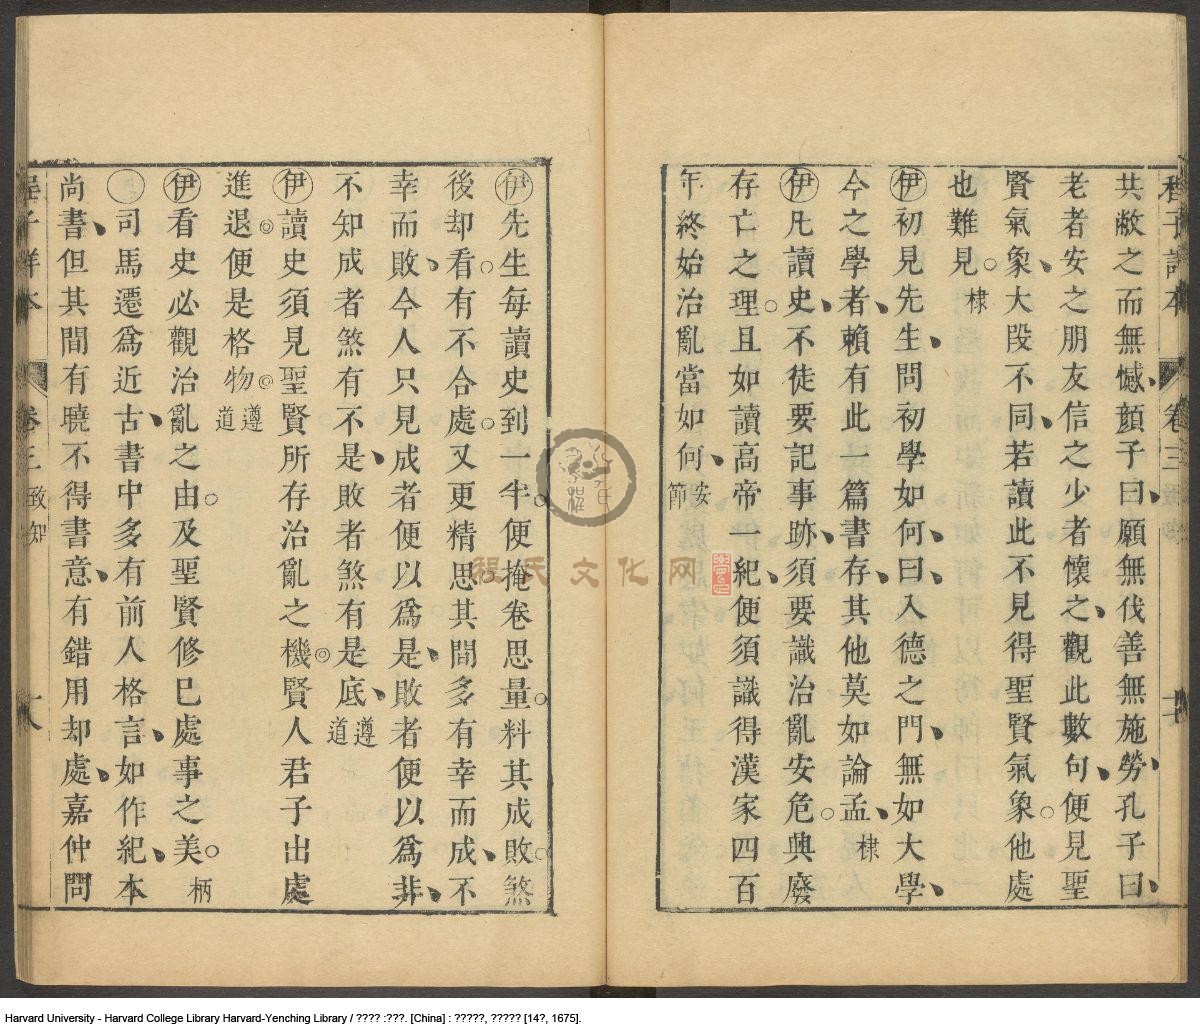 程子詳本 卷三 十七
共敝之而無憾顏子曰願無伐善無施勞孔子曰
老者安之朋友信之少者懷之觀此數句便見聖
賢氣象大段不同若讀此不見得聖賢氣象他處
也難見 棣
伊初見先生問初學如何曰入德之門無如大學
今之學者賴有此一篇書存其他莫如論孟 棣
伊凡讀史不徒要記事跡須要識治亂安危興廢
存亡之理且如讀高帝一紀便須識得漢家四百
年終始治亂當如何 安節
伊先生每讀史到一半便掩卷思量料其成敗煞
後却看有不合處又更精思其間多有幸而成不
幸而敗今人只見成者便以爲是敗者便以爲非
不知成者煞有不是敗者煞有是底 遵道
伊讀史須見聖賢所存治亂之機賢人君子出處
進退便是格物 遵道
伊看史必觀治亂之由及聖賢修已處事之美 柄
司馬遷爲近古書中多有前人格言如作紀本
尚書但其間有曉不得書意有錯用却處嘉仲問
程子詳本 卷三 致知 十八
程氏文化网
Harvard University - Harvard College Library Harvard-Yenching Library / ???? :???. [China] : ?????, ????? [14?, 1675].